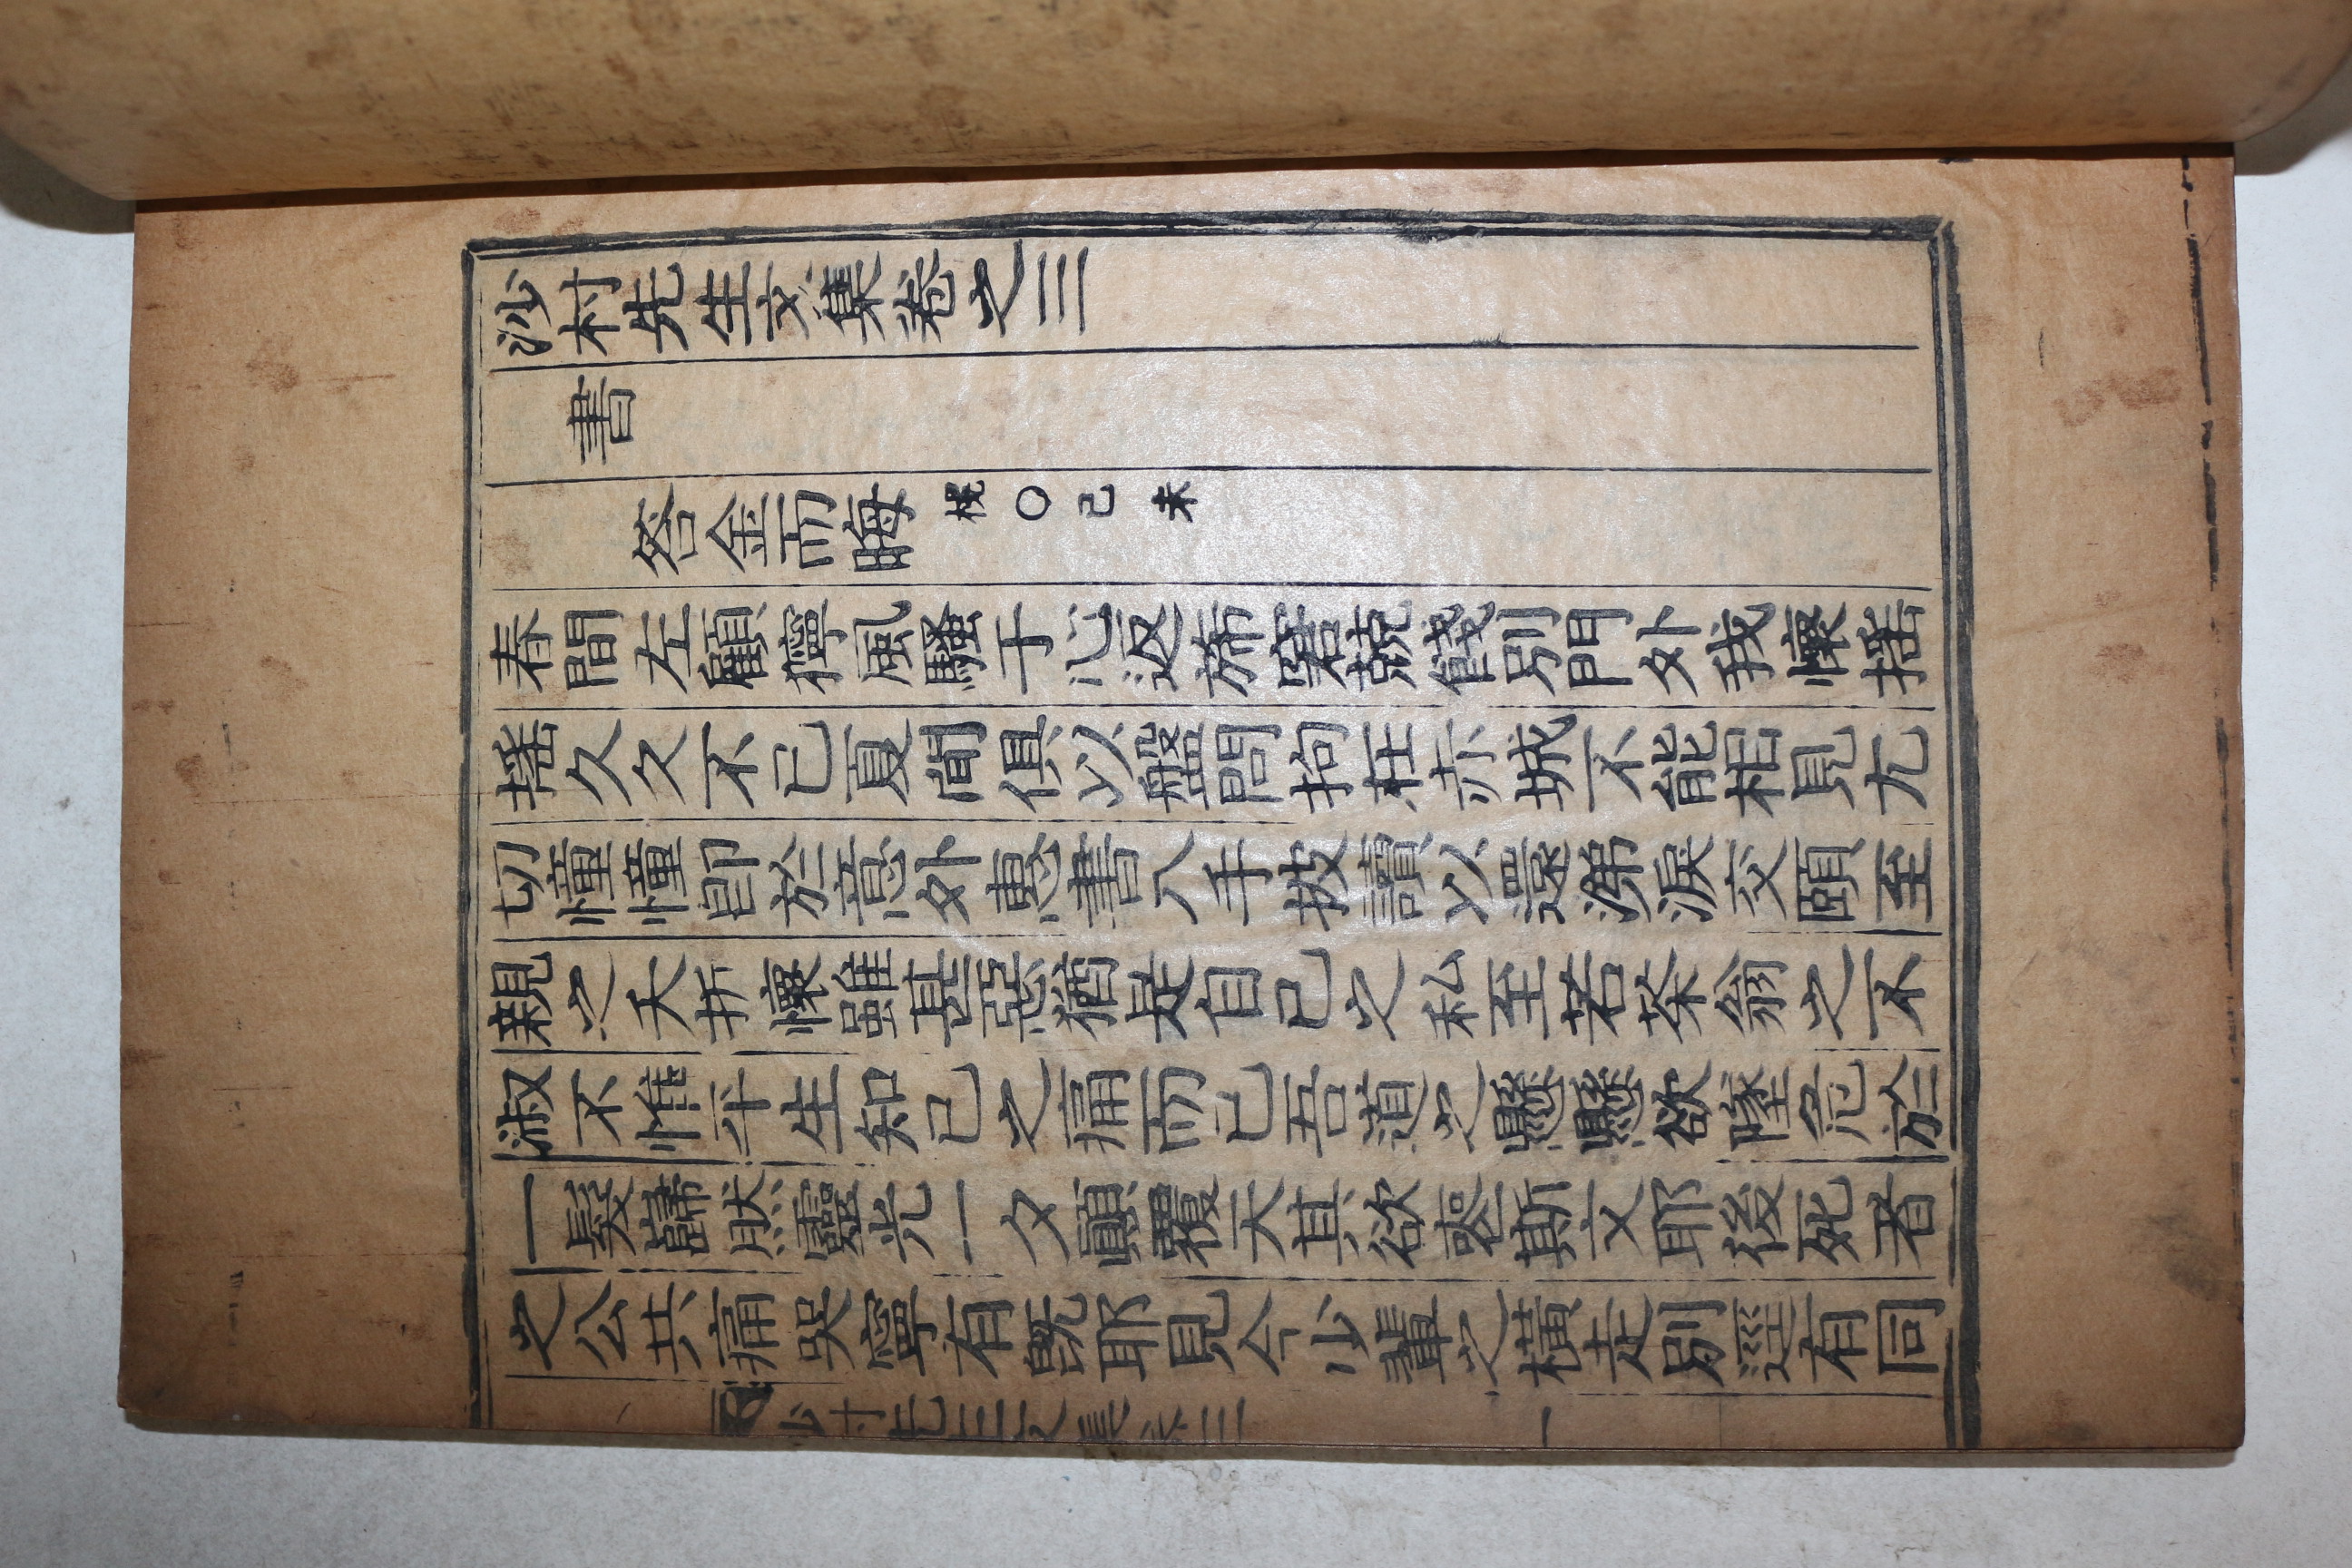 沙村先生文集卷之三
書
答金而晦 棁○己未
春間左顧獰風騷于心返旆窘兢餞別門外我懷搖
搖久久不已夏間俱以盤問拘在赤城不能相見尤
切憧憧卽於意外惠書入手披讀以還涕淚交頤至
親之夭折懷雖甚惡猶是自己之私至若栄翁之不
淑不惟平生知己之痛而已吾道之懸懸欲墜危於
一髮巋然靈光一夕顚覆天其欲喪斯文耶後死者
之公共痛哭寧有旣耶見今少輩之橫走別逕有同
沙村先生文集卷三 一